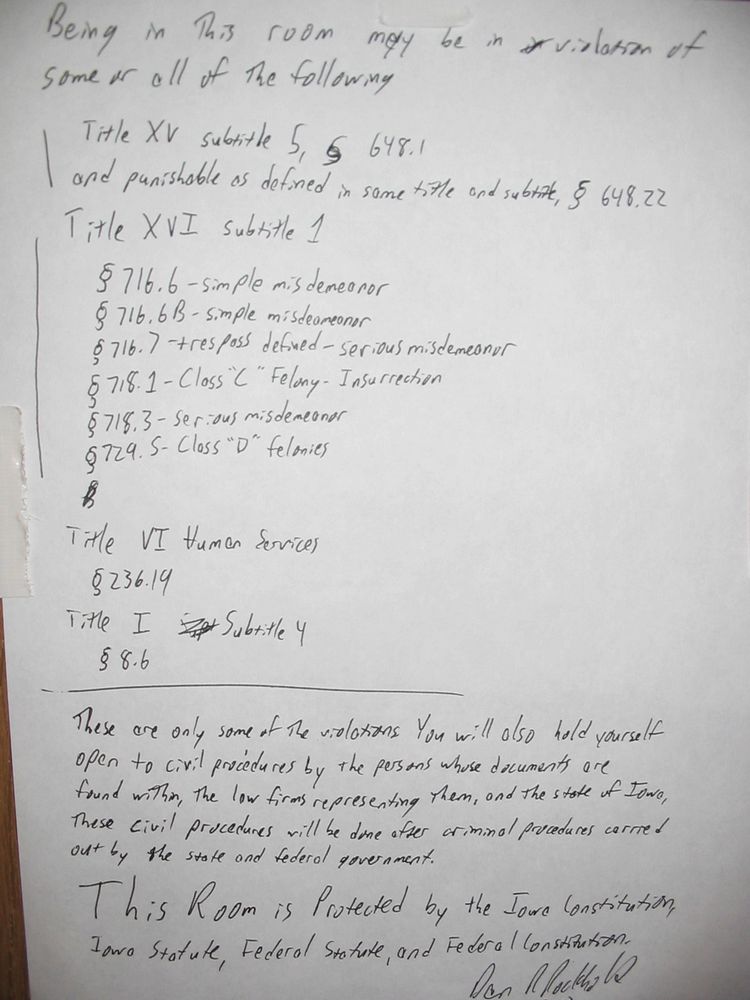 Being in This room may be in violation of
some or all of the following
Title XV subtitle 5, § 648.1
and punishable as defined in same title and subtitle, § 648.22
Title XVI subtitle 1
§ 716.6 - simple misdemeanor
§ 716.6B - simple misdeameonor
§ 716.7 - trespass defined - serious misdemeanor
§ 718.1 - Class "C" Felony - Insurrection
§ 718.3 - serious misdemeanor
§ 729.5 - Class "D" felonies
Title VI Human Services
§ 236.14
Title I Subtitle 4
§ 8.6
These are only some of the violations. You will also hold yourself
open to civil procedures by the persons whose documents are
found within, the law firms representing them, and the state of Iowa,
These civil procedures will be done after criminal procedures carried
out by the state and federal government.
This Room is Protected by the Iowa Constitution,
Iowa Statute, Federal Statute, and Federal Constitution.
Dan R